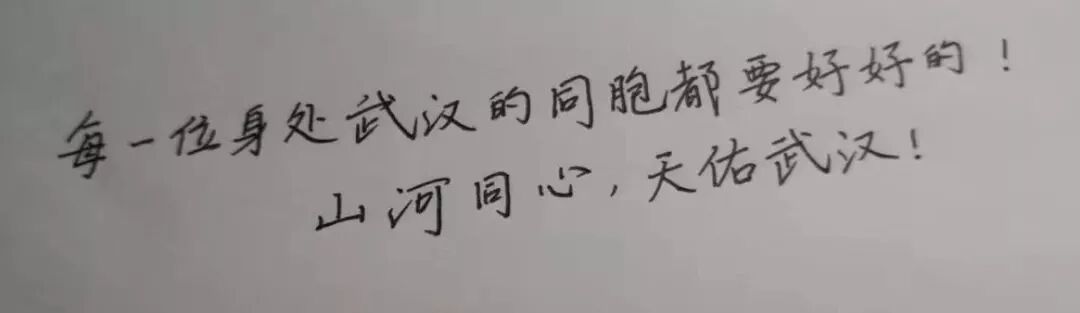 每一位身处武汉的同胞都要好好的!
山河同心,天佑武汉!